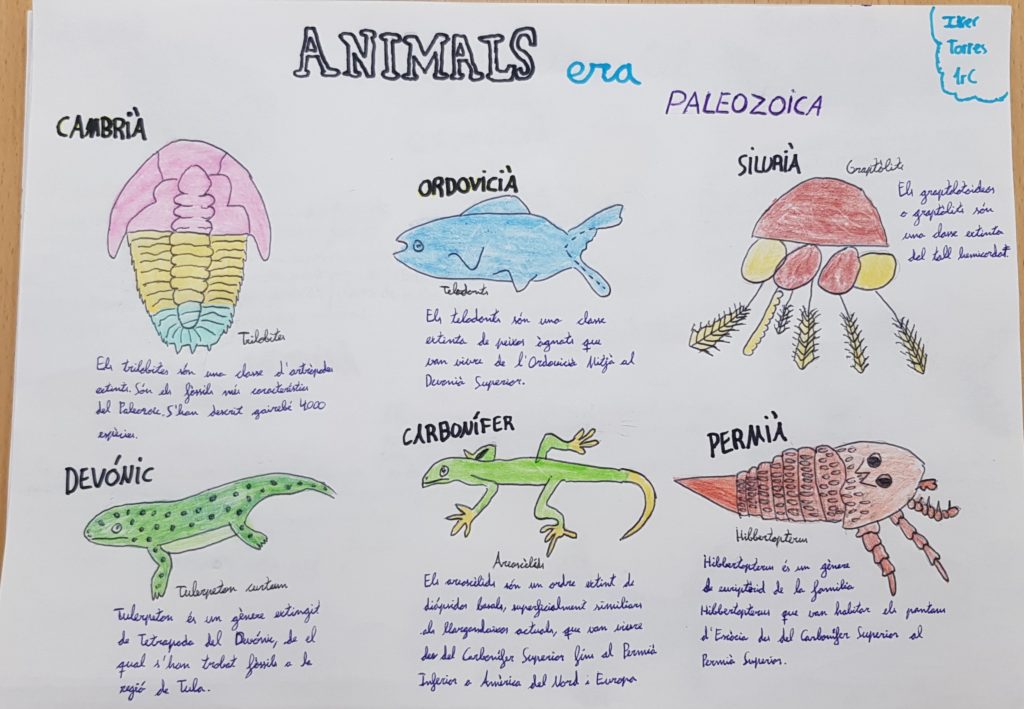 ANIMALS era
PALEOZOICA
Iker
Torres
1rC
CAMBRIÀ
Trilobites
Els trilobites són una classe d'artròpodes
extints. Són els fòssils més característics
del Paleozoic. S'han descrit gairebé 4000
espècies.
ORDOVICIÀ
Telodonti
Els telodonti són una classe
extinta de peixos àgnats que
van viure de l'Ordovicià Mitjà al
Devonià Superior.
SILURIÀ
Graptòlits
Els graptolotoideos
o graptòlits són
una classe extinta
del tall hemicordat.
DEVÓNIC
Tulerpeton curtum
Tulerpeton és un gènere extingit
de Tetrapoda del Devónic, de el
qual s'han trobat fòssils a la
regió de Tula.
CARBONÍFER
Areoscèlids
Els areoscèlids són un ordre extint de
diápsides basals, superficialment similiars
als llargandaixos actuals, que van viure
des del Carbonífer Superior fins al Permià
Inferior a Amèrica del Nord i Europa
PERMIÀ
Hibbertopterus
Hibbertopterus és un gènere
de euriptèrid de la família
Hibbertopterus que van habitar els pantans
d'Escòcia des del Carbonífer Superior al
Permià Superior.